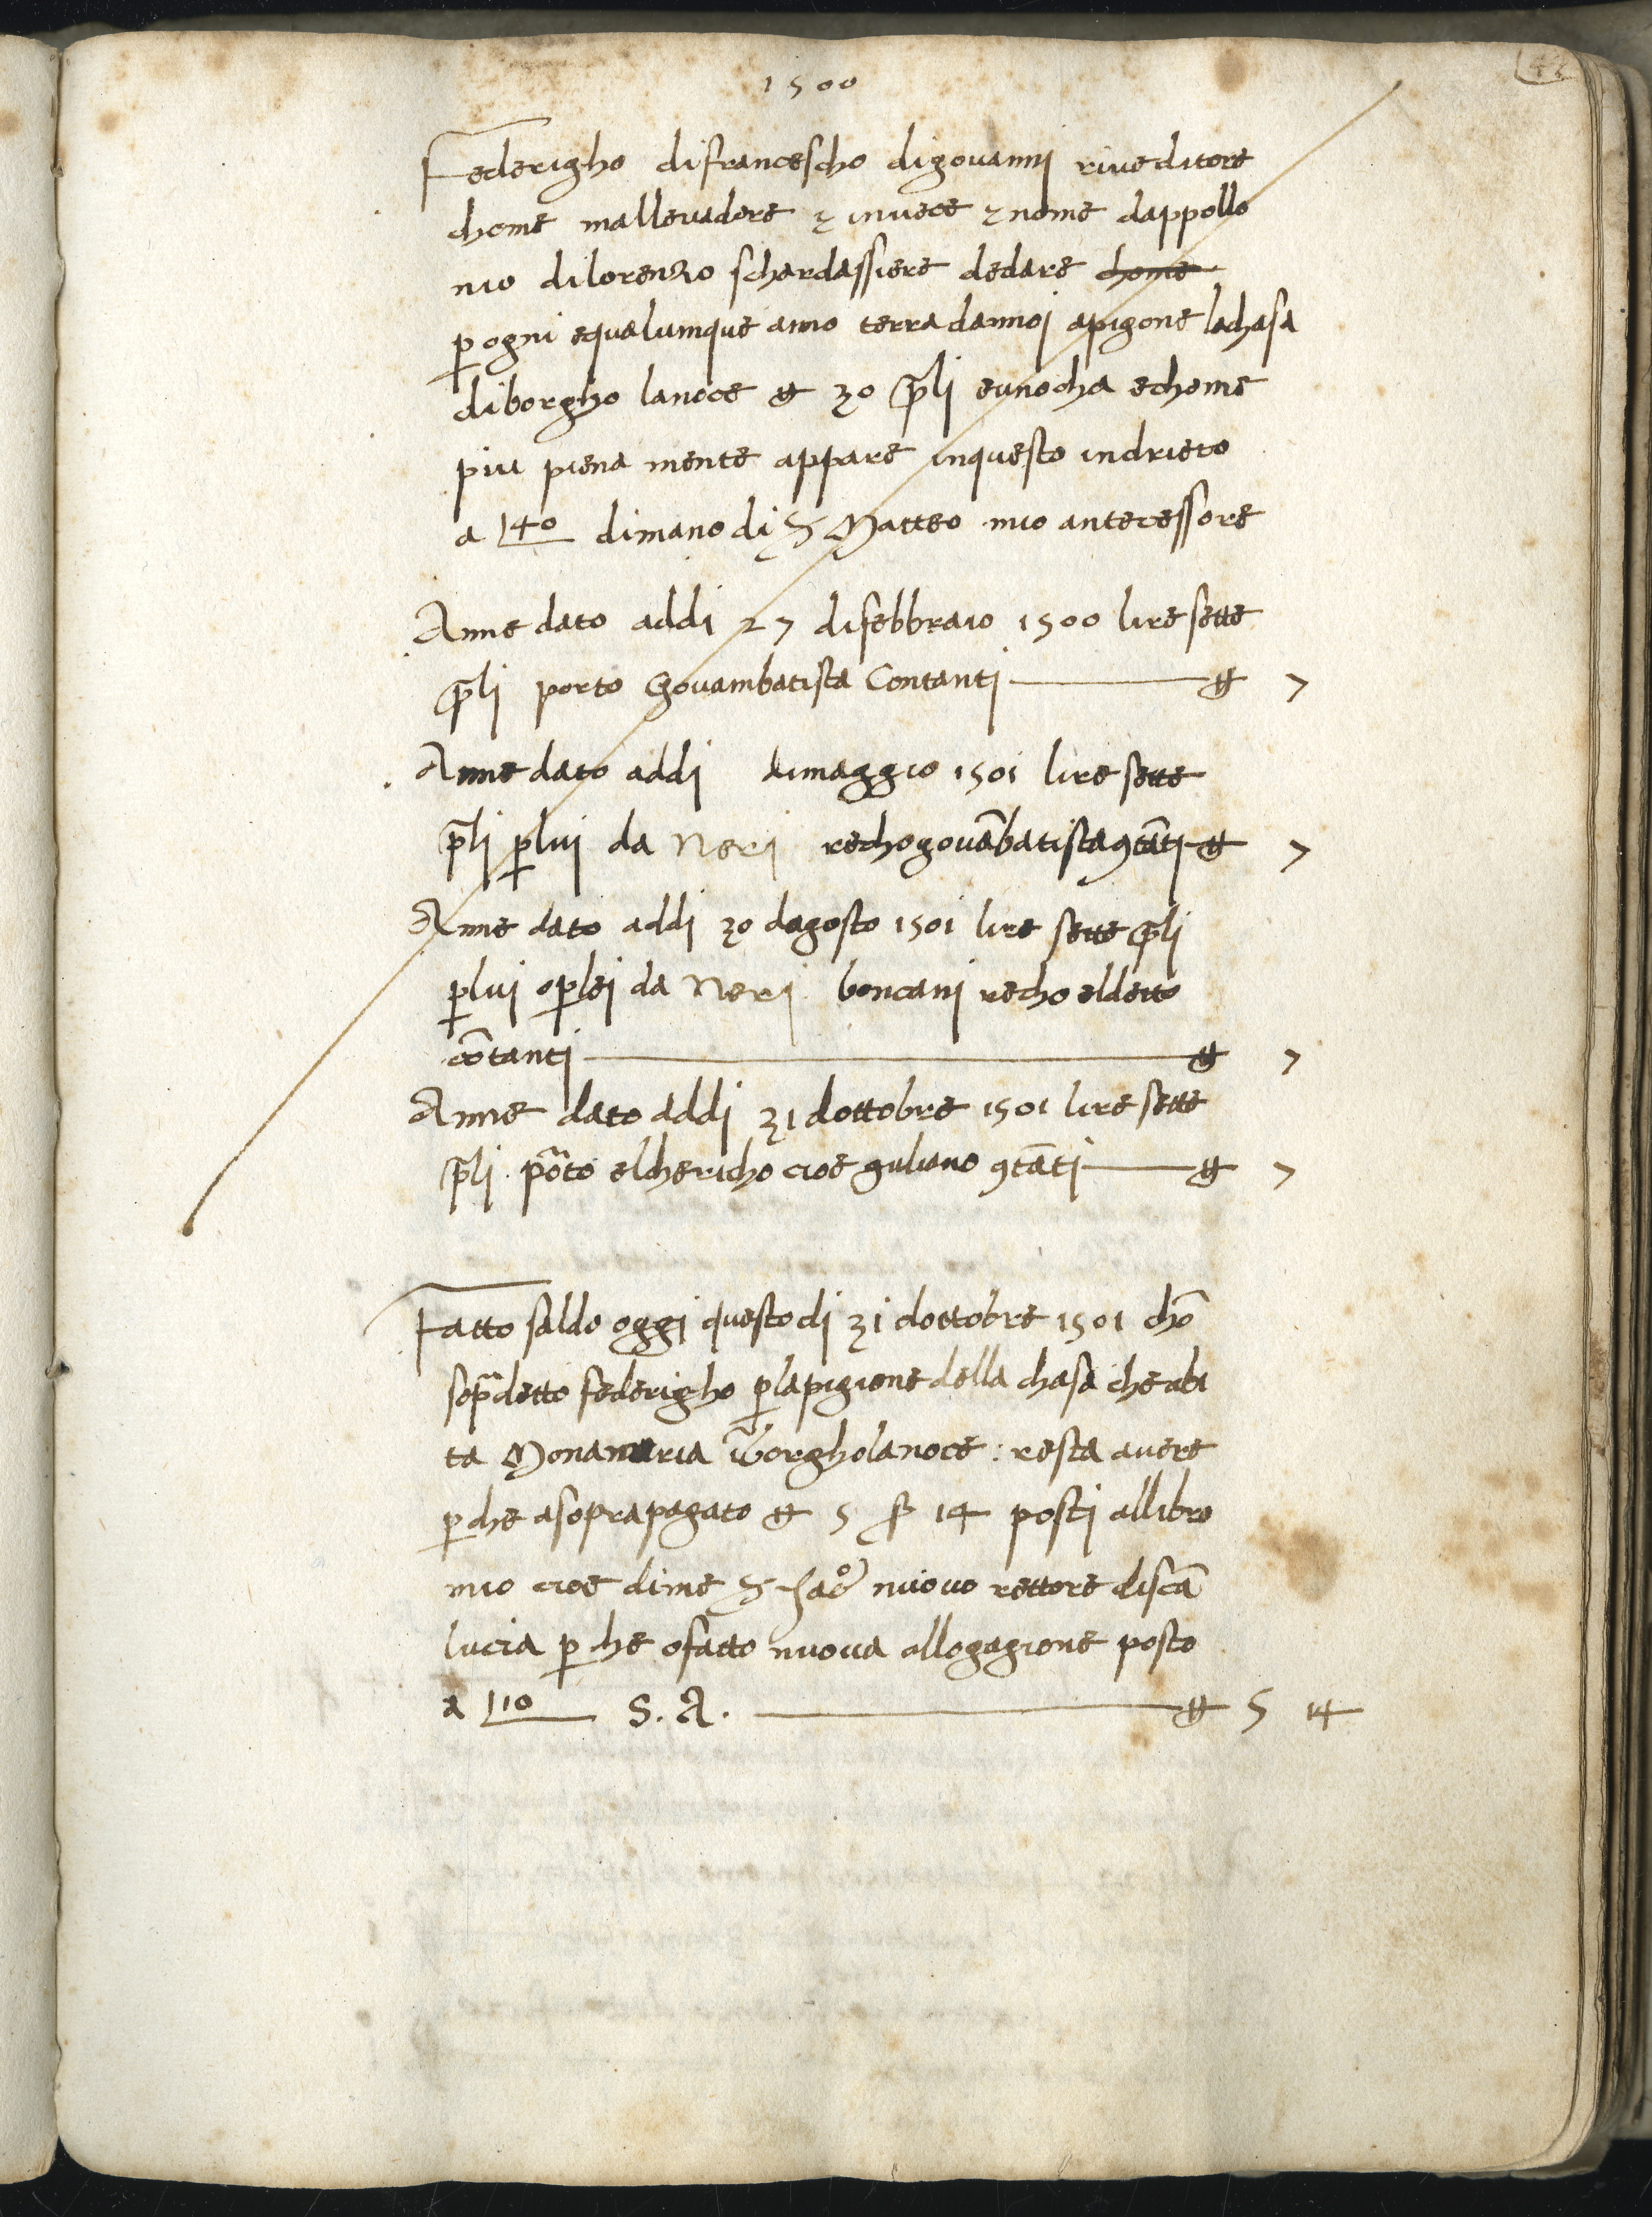 1500
Federigho difrancescho digovanni riveditore
chome mallevadore ⁊ invece ⁊ nome dappollo
nio dilorenzo schardassiere dedare chome
p ogni equalumque anno terra dannoi apigone lachasa
diborgho lanoce ₶ 30 p̄li eunocha echome
piu piena mente appare inquesto indrieto
a 140 dimano di S Matteo mio antecessore
Anne dato addi 27 disebbraio 1500 lire sette
p̄li porto Govambatista Contanti ₶ 7
Anne dato addi dimaggio 1501 lire sette
p̄li plui da Neri recho govābatista 9tāti ₶ 7
Anne dato addi 30 dagosto 1501 lire sette p̄li
plui oplei da Neri boncani recho eldetto
cōtanti ₶ 7
Anne dato addi 31 dottobre 1501 lire sette
p̄li pōto elchericho cioe guliano 9tāti ₶ 7
Fatto saldo oggi questo di 31 dottobre 1501 chō
sop̄detto federigho plapigione della chasa che abi
ta Monamaria īborgholanoce : resta avere
pche asoprapagato ₶ 5 ß 14 posti allibro
mio cioe dime S nuovo rettore discā
lucia p che ofatto nuova allogagione posto
a 110 S. A. ₶ 5 14